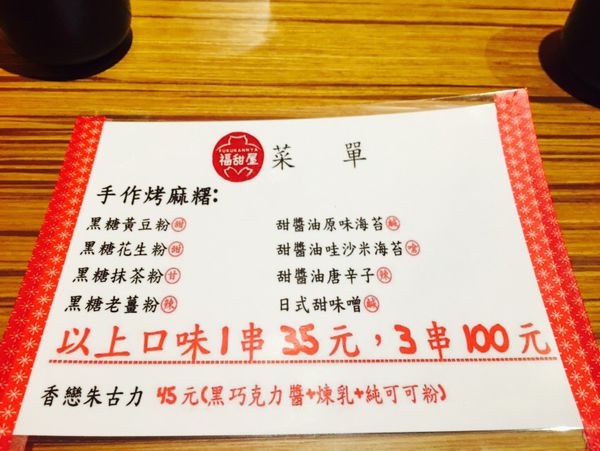 FUKUKANNYA
福甜屋
菜單
手作烤麻糬:
黑糖黃豆粉 甜
黑糖花生粉 甜
黑糖抹茶粉 甘
黑糖老薑粉 辣
甜醬油原味海苔 鹹
甜醬油哇沙米海苔 嗆
甜醬油唐辛子 辣
日式甜味噌 鹹
以上口味1串35元,3串100元
香戀朱古力 45元(黑巧克力醬+煉乳+純可可粉)